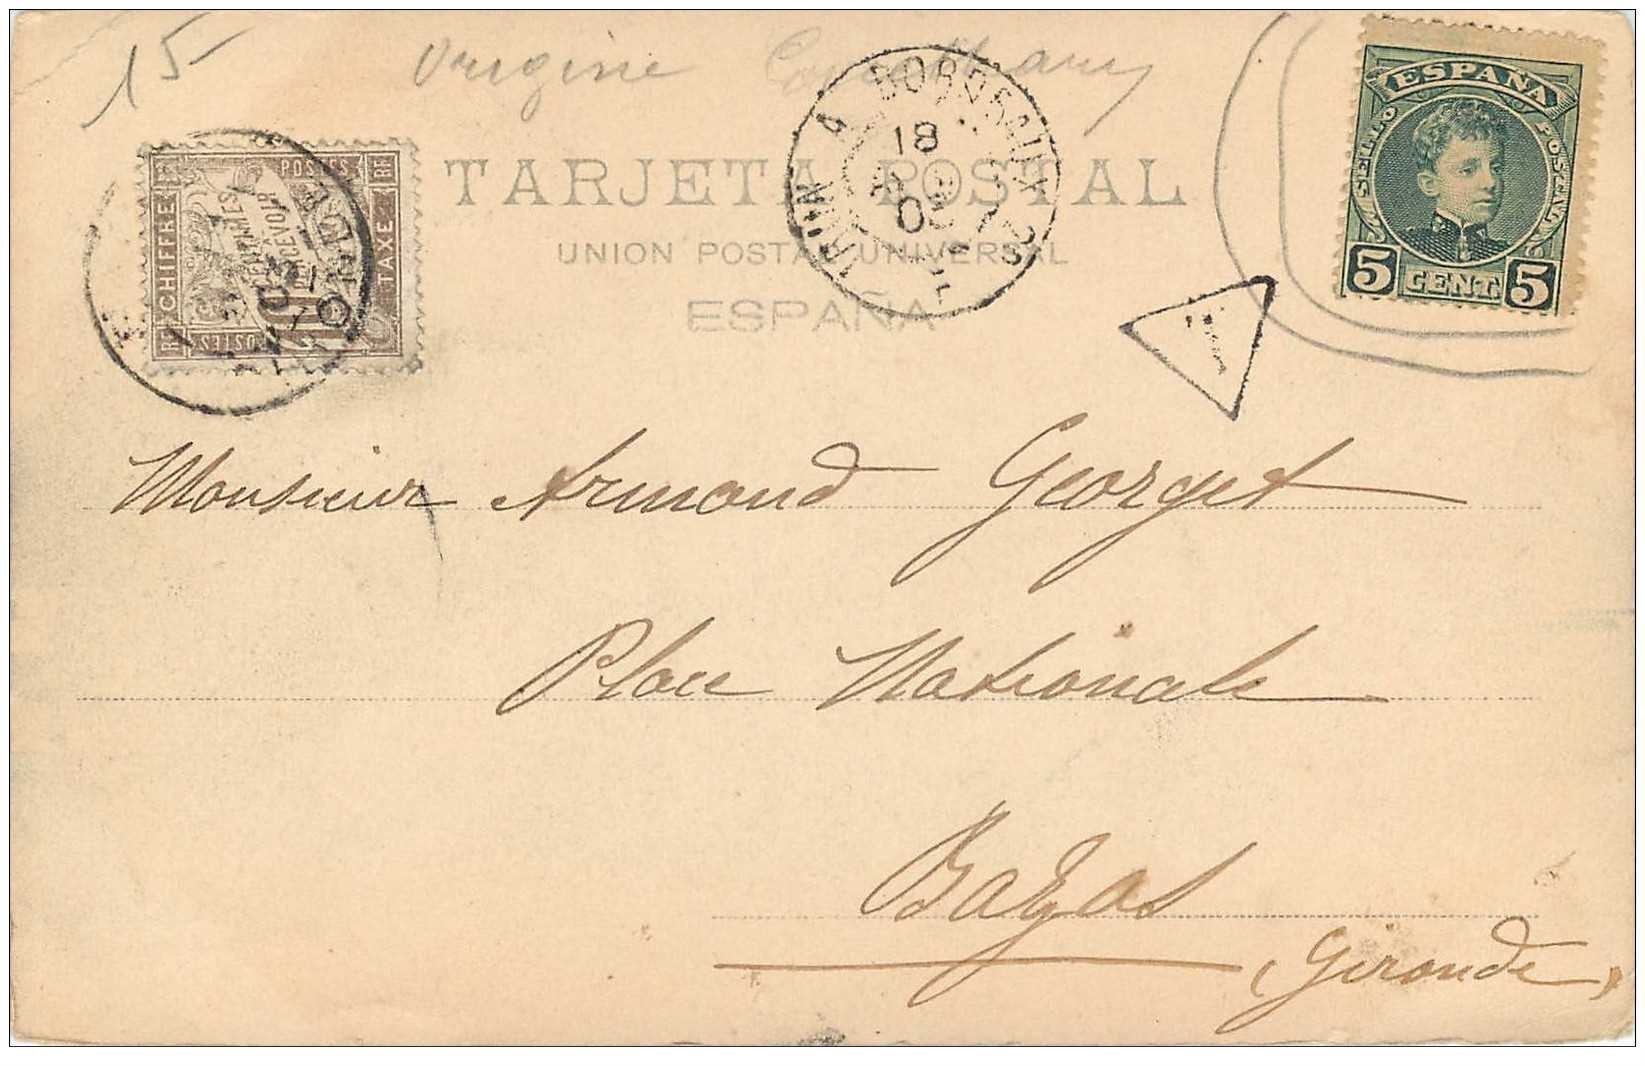 15
Origine
ESPAÑA
SELLO POSTAL
5 CENT. 5
RF CHIFFRE
POSTES RF
CENTIMES
À PERCEVOIR
TAXE
RF POSTES
10
03
IRUN A BORDEAUX 2°
18
03
TARJETA POSTAL
UNION POSTAL UNIVERSAL
ESPAÑA
T
Monsieur Armand Georget
Place Nationale
Bazas
(Gironde)